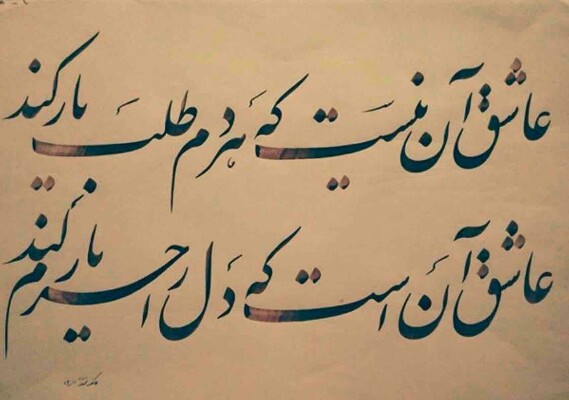 عاشق آن نیست که هر دم طلب یار کند
عاشق آن است که دل را حریم یار کند